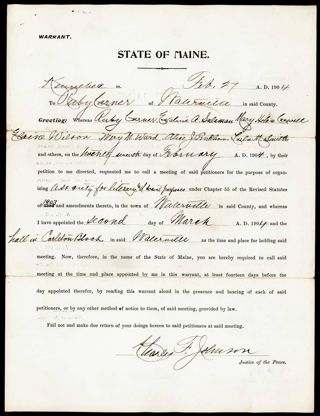 WARRANT.
STATE OF MAINE.
Kennebec ss. Feb. 27 A. D. 1904
To Ruby Carver of Waterville in said County.
Greeting: Whereas Ruby Carver, A. Salsman, Mary
Elaine Wilson, Mary W. Ward, Alice J. Smith
and others, on the twenty seventh day of February A. D. 1904, by their
petition to me directed, requested me to call a meeting of said petitioners for the purpose of organ-
izing a society for Literary & Social purposes under Chapter 55 of the Revised Statutes
of 1903 and amendments thereto, in the town of Waterville in said County, and whereas
I have appointed the second day of March A. D. 1904 and the
hall in Carleton Block in said Waterville as the time and place for holding said
meeting. Now, therefore, in the name of the State of Maine, you are hereby required to call said
meeting at the time and place appointed by me in this warrant, at least fourteen days before the
day appointed therefor, by reading this warrant aloud in the presence and hearing of each of said
petitioners, or by any other method of notice to them, of said meeting, provided by law.
Fail not and make due return of your doings hereon to said petitioners at said meeting.
Charles F. Johnson
Justice of the Peace.